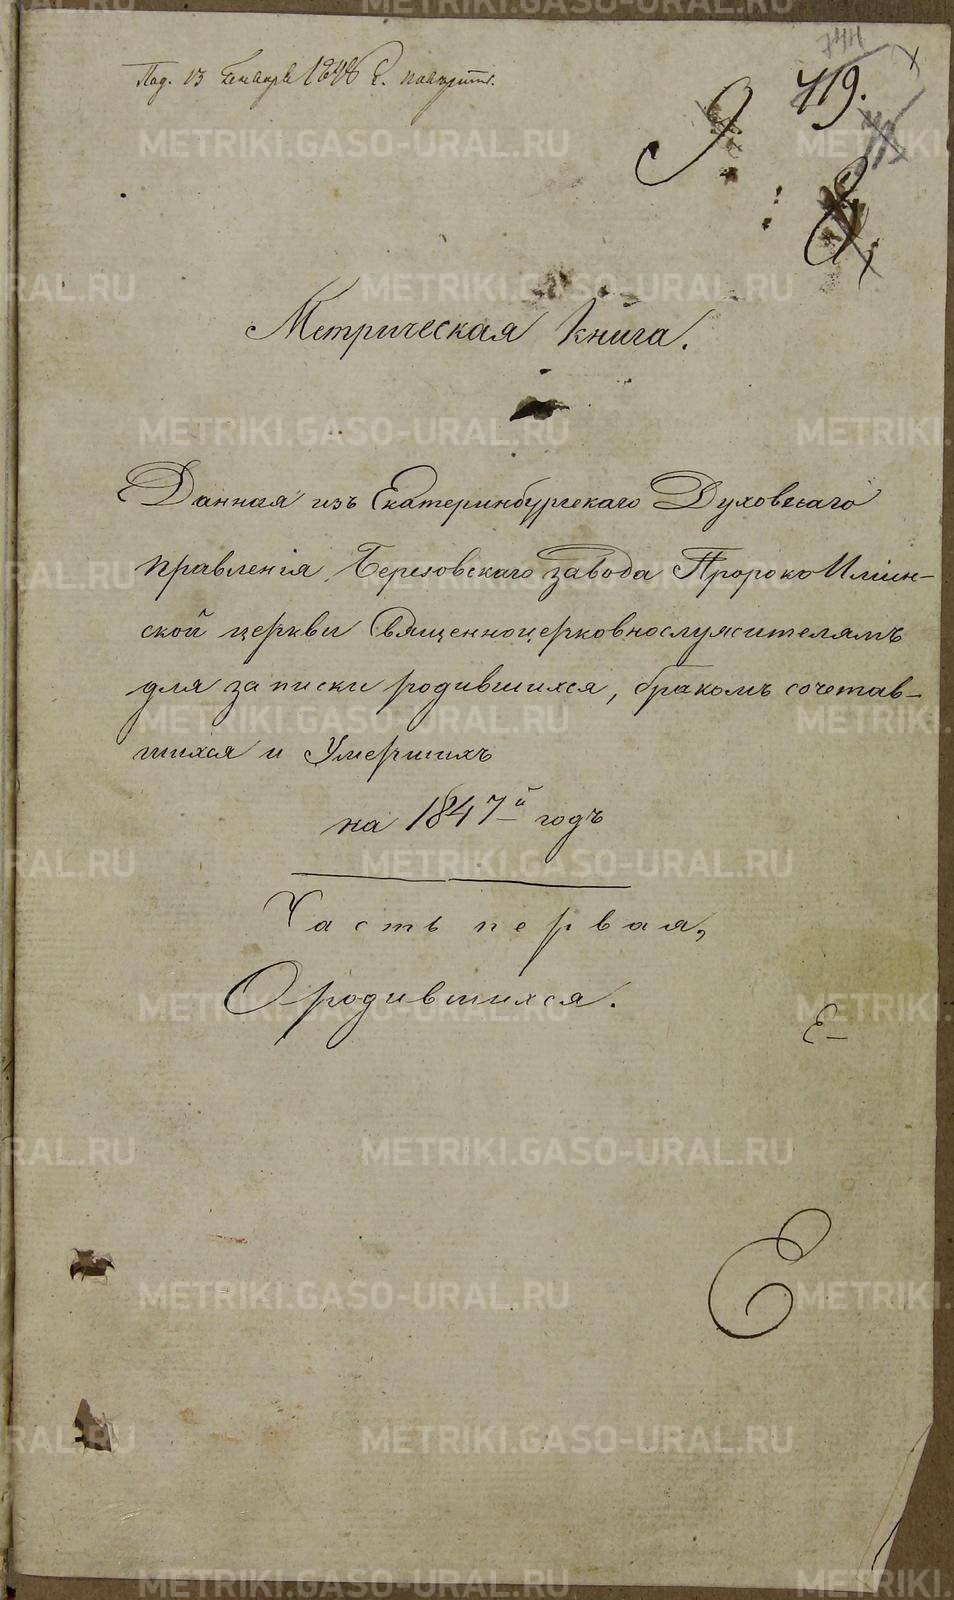 744
Под. 13 Генваря 1848 г.
719.
Метрическая книга.
Данная изъ Екатеринбургскаго Духовнаго
правленія Березовскаго завода Пророко Ильин-
ской церкви Священноцерковнослужителямъ
для записки родившихся, бракомъ сочетав-
шихся и Умершихъ
на 1847й годъ
Часть первая,
О родившихся.
Е
Е
METRIKI.GASO-URAL.RU